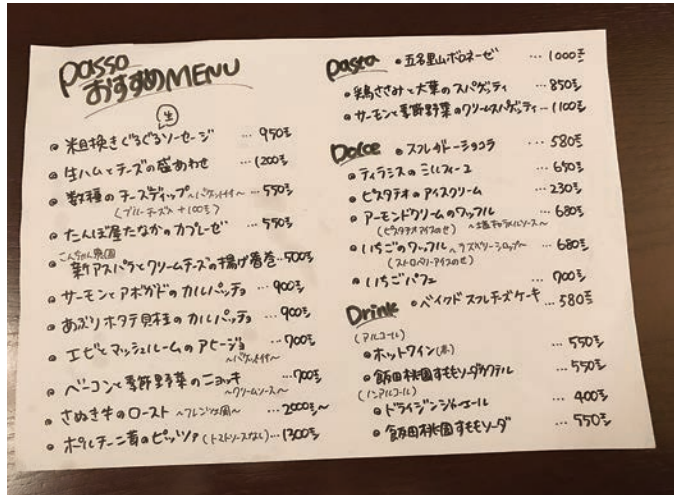 passo
おすすめMENU
生
粗挽きぐるぐるソーセージ … 950円
生ハムとチーズの盛あわせ … 1200円
数種のチーズディップ 〜バケット付〜 … 550円
(ブルーチーズ入 +100円)
たんぼ屋たなかのカプレーゼ … 550円
こんちゃん農園
新アスパラとクリームチーズの揚げ春巻 … 500円
サーモンとアボカドのカルパッチョ … 900円
あぶりホタテ貝柱のカルパッチョ … 900円
エビとマッシュルームのアヒージョ … 700円
〜バケット付〜
ベーコンと季節野菜のニョッキ … 700円
〜クリームソース〜
さぬき牛のロースト 〜フレンツェ風〜 … 2000円〜
ポルチーニ茸のピッツァ (トマトソースなし) … 1300円
pasta
五名里山ボロネーゼ … 1000円
鶏ささみと大葉のスパゲッティ … 850円
サーモンと季節野菜のクリームスパゲッティ … 1100円
Dolce
スフレガトーショコラ … 580円
ティラミスのミルフィーユ … 650円
ピスタチオのアイスクリーム … 230円
アーモンドクリームのワッフル … 680円
(ピスタチオアイスのせ) 〜塩キャラメルソース〜
いちごのワッフル 〜ラズベリーシロップ〜 … 680円
(ストロベリーアイスのせ)
いちごパフェ … 700円
ベイクドスフレチーズケーキ … 580円
Drink
(アルコール)
ホットワイン(赤) … 550円
飯田桃園すももソーダカクテル … 550円
(ノンアルコール)
ドライジンジャーエール … 400円
飯田桃園すももソーダ … 550円